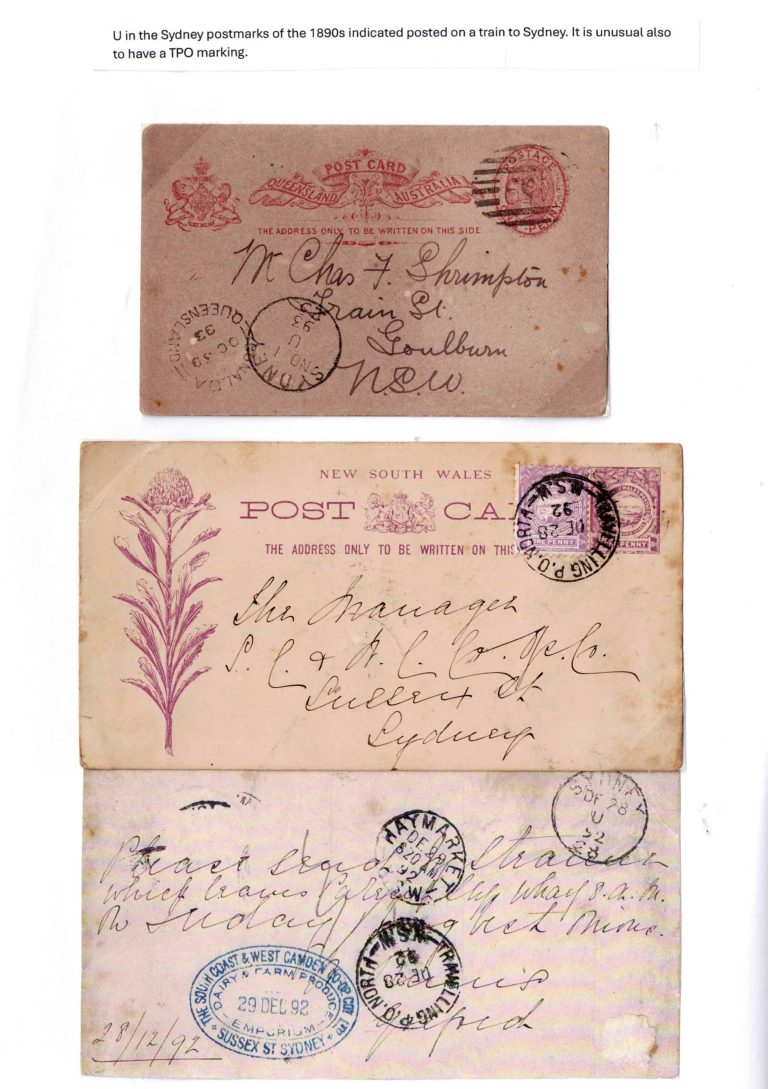 U in the Sydney postmarks of the 1890s indicated posted on a train to Sydney. It is unusual also
to have a TPO marking.
POST CARD
QUEENSLAND AUSTRALIA
THE ADDRESS ONLY TO BE WRITTEN ON THIS SIDE
POSTAGE
PENNY
Mr Chas F. Shrimpton
Train St.
Goulburn
N.S.W.
QUEENSLAND
OC 30
93
SYDNEY
NO 1
U
93
23
NEW SOUTH WALES
POST CA
THE ADDRESS ONLY TO BE WRITTEN ON THIS
TRAVELLING P.O. NORTH N.S.W.
DE 28
92
E PENNY
PENNY
The Manager
S. C. & W. C. Co. Op. Co.
Sussex St
Sydney
SYDNEY
DE 28
U
92
23
HAYMARKET
DE 29
6 20 AM
92
N.S.W
Please send
which leaves wharf 8 a.m.
TRAVELLING P.O. NORTH N.S.W.
DE 28
92
THE SOUTH COAST & WEST CAMDEN CO-OP COY LTD
DAIRY & FARM PRODUCE
29 DEC 92
EMPORIUM
SUSSEX ST SYDNEY
28/12/92